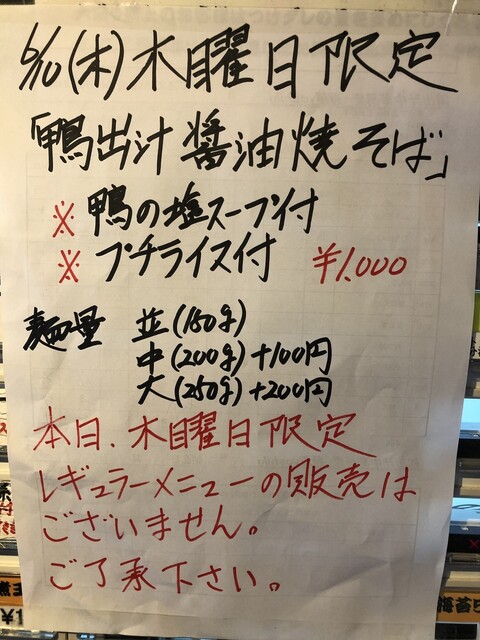 6/10(木)木曜日限定
「鴨出汁醤油焼そば」
※鴨の塩スープ付
※プチライス付 ¥1.000
麺量 並(150g)
中(200g)+100円
大(250g)+200円
本日、木曜日限定
レギュラーメニューの販売は
ございません。
ご了承下さい。